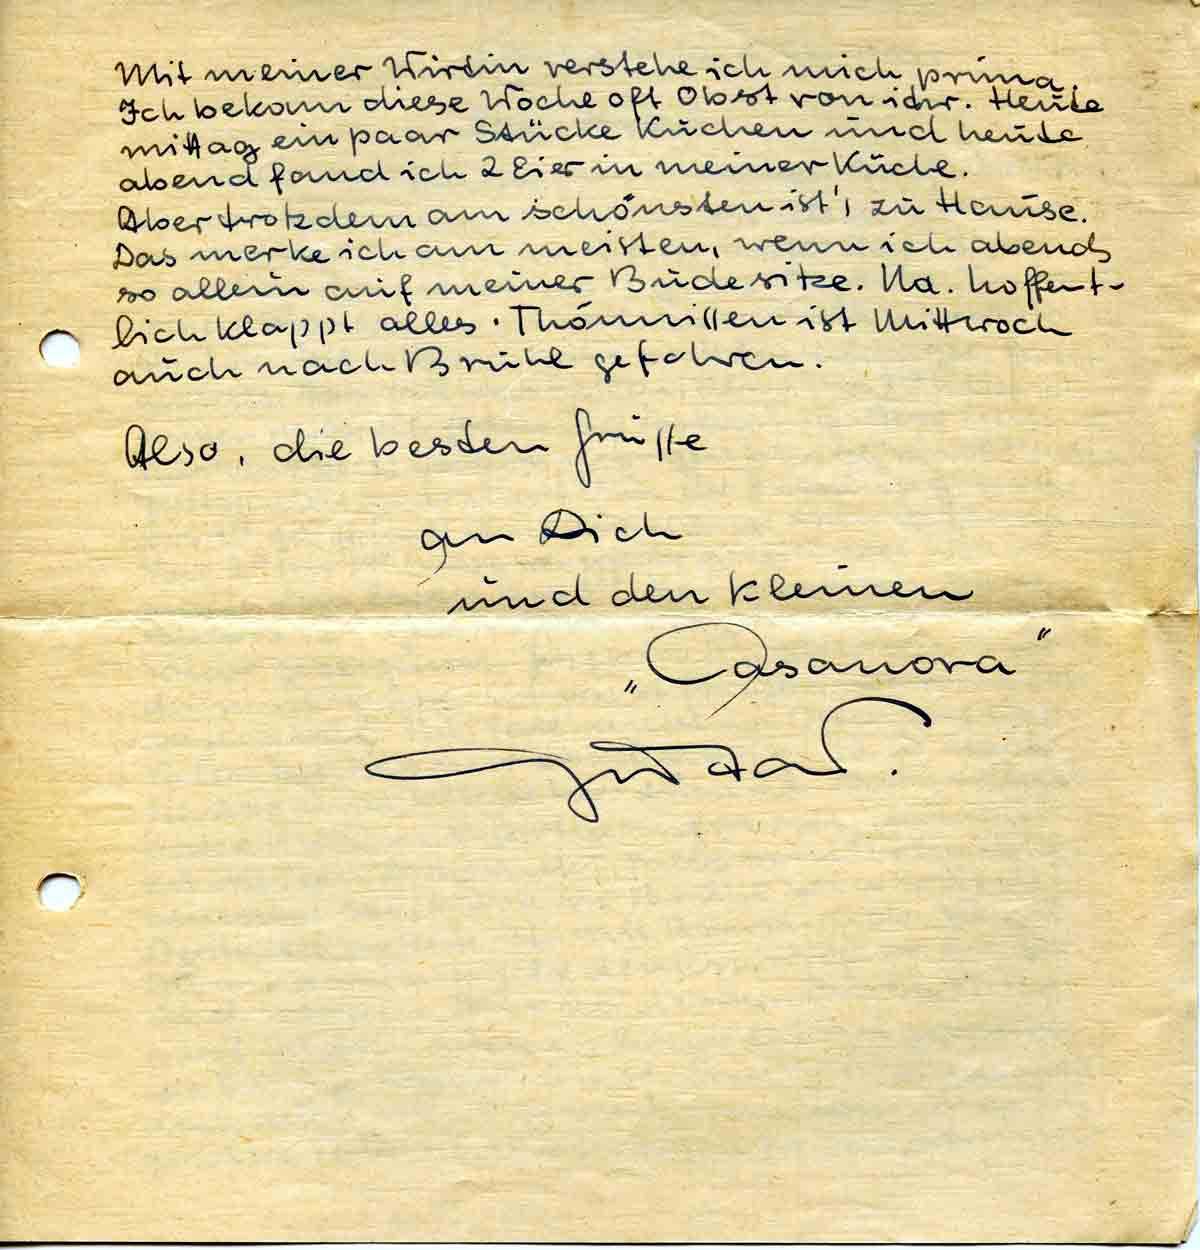 Mit meiner Wirtin verstehe ich mich prima.
Ich bekam diese Woche oft Obst von ihr. Heute
mittag ein paar Stücke Kuchen und heute
abend fand ich 2 Eier in meiner Küche.
Aber trotzdem am schönsten ist's zu Hause.
Das merke ich am meisten, wenn ich abends
so allein auf meiner Bude sitze. Na. hoffent-
lich klappt alles. Thönnissen ist Mittwoch
auch nach Brühl gefahren.
Also, die besten Grüsse
an Dich
und den kleinen
„Casanova"
Gustav.